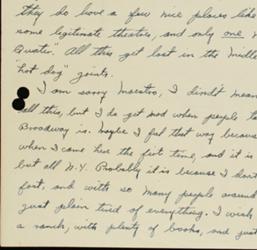 they do have a few nice places like
some legitimate theatres, and only one N
Quater." All this get lost in the middle
"hot dog" joints.
I am sorry Maestro, I dindt mean
all this, but I do get mad when people t
Broadway is. Maybe I feel that way because
when I came here the firt time, and it is
but all N.Y. Probably it is because I don't
fast, and with so many people around
just plain tired of everything. I wish
a ranch, with plenty of books, and just